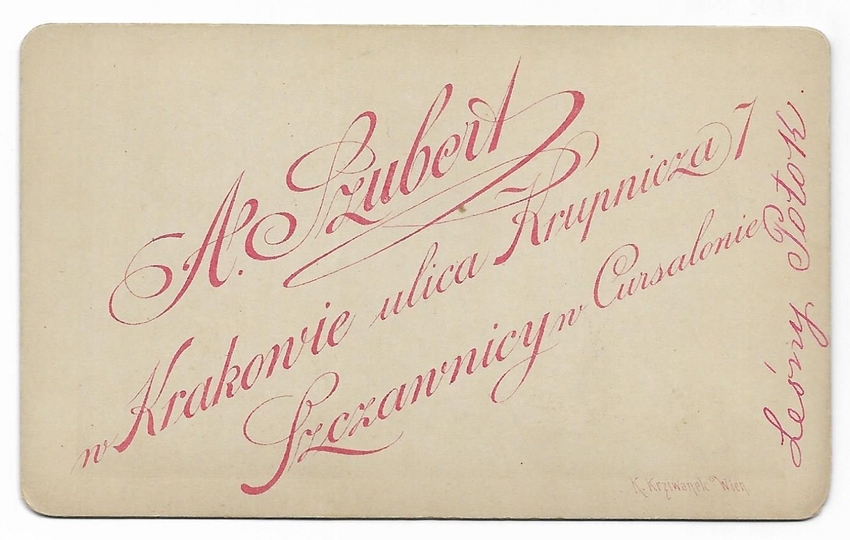 A. Szubert
w Krakowie ulica Krupnicza 7
Szczawnicy w Cursalonie
K. Krziwanek Wien
Leśny Potok.